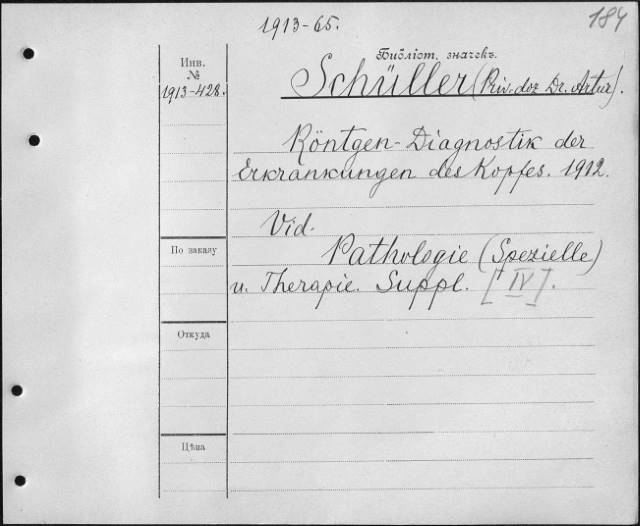 1913-65.
184
Библіот. значекъ.
Инв.
№
1913-428.
Schüller (Priv. doz Dr. Artur).
Röntgen-Diagnostik der
Erkrankungen des Kopfes. 1912.
Vid.
По заказу
Pathologie (Spezielle)
u. Therapie. Suppl. [IV].
Откуда
Цѣна